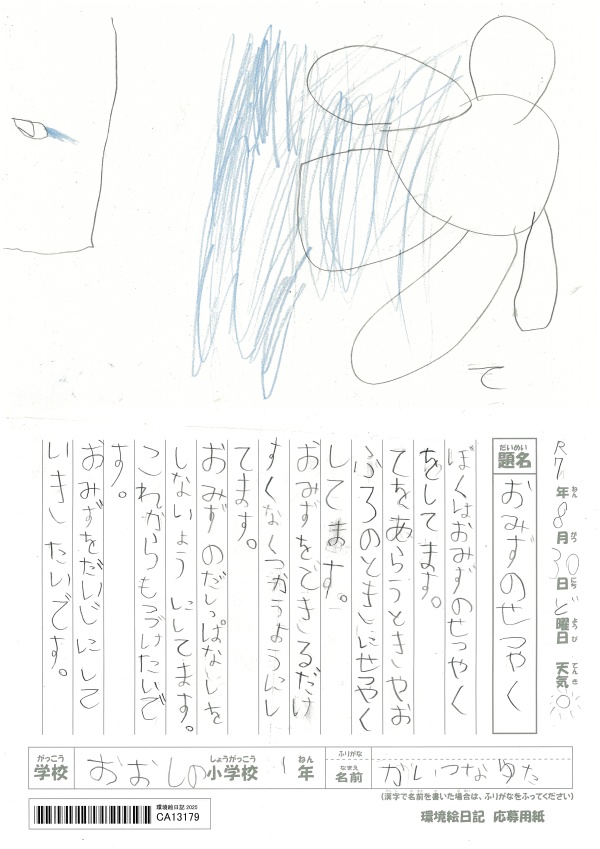 て
R7年8月30日ど曜日 天気
ねん がつ にち ようび てんき
だいめい
題名 おみずのせつやく
ぼくはおみずのせつやく
をしてます。
てをあらうときやお
ふろのときにせつやく
してます。
おみずをできるだけ
すくなくつかうようにし
てます。
おみずのだしっぱなしを
しないようにしてます。
これからもつづけたいで
す。
おみずをだいじにして
いきしたいです。
がっこう しょうがっこう ねん ふりがな
学校 おおしの小学校 1年
なまえ
名前 ゆた
(漢字で名前を書いた場合は、ふりがなをふってください)
環境絵日記 応募用紙
環境絵日記 2025
CA13179